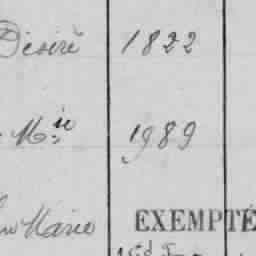 Désiré 1822
Mie 1989
Marie EXEMPTÉ